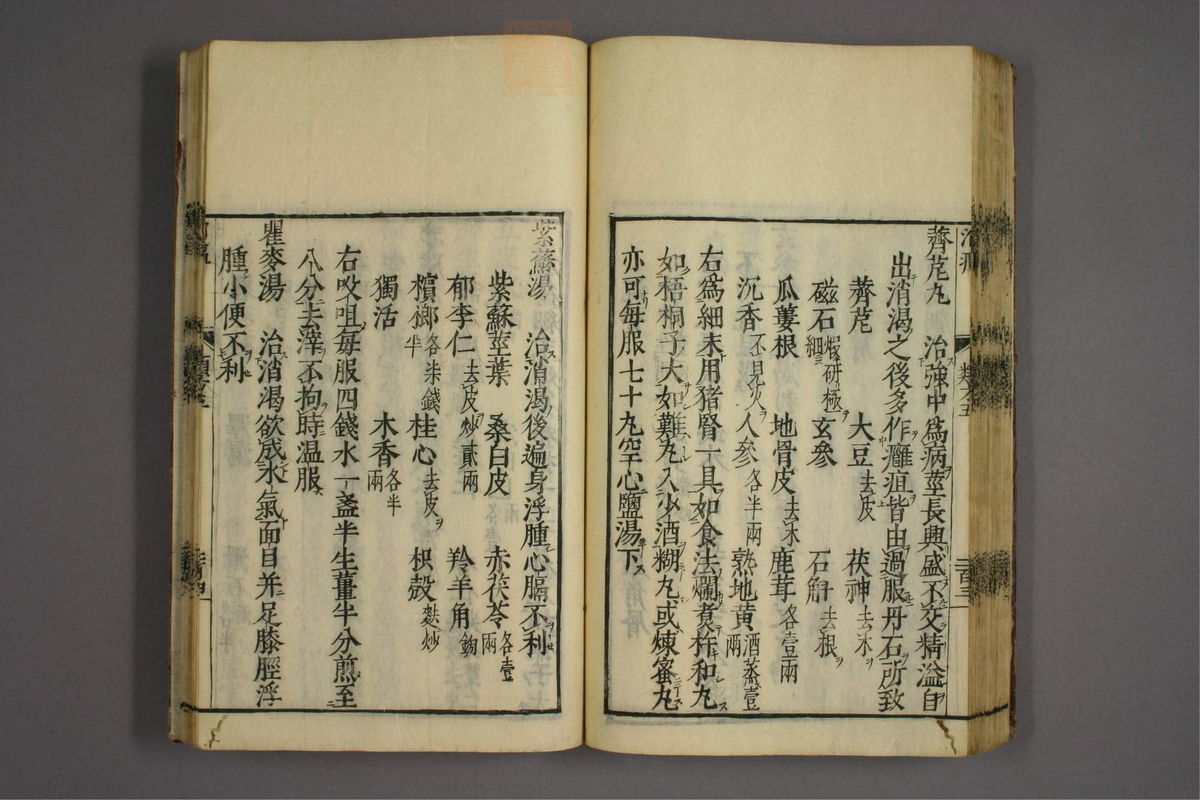 薺苨丸 治強中為病莖長興盛不交精溢自
出消渴之後多作癰疽皆由過服丹石所致
薺苨 大豆去皮 茯神去木
磁石煅研極細 玄參 石斛去根
瓜蔞根 地骨皮去木 鹿茸各壹兩
沉香不見火 人參各半兩 熟地黄酒蒸壹兩
右為細末用猪腎一具如食法爛煮杵和丸
如梧桐子大如難丸入少酒糊丸或煉蜜丸
亦可每服七十丸空心鹽湯下
紫蘇湯 治消渴後遍身浮腫心膈不利
紫蘇莖葉 桑白皮 赤茯苓各壹兩
郁李仁去皮炒貳兩 羚羊角鎊
檳榔各柒錢半 桂心去皮 枳殼麩炒
獨活 木香各半兩
右㕮咀每服四錢水一盞半生薑半分煎至
八分去滓不拘時温服
瞿麥湯 治消渴欲成水氣面目并足膝脛浮
腫小便不利